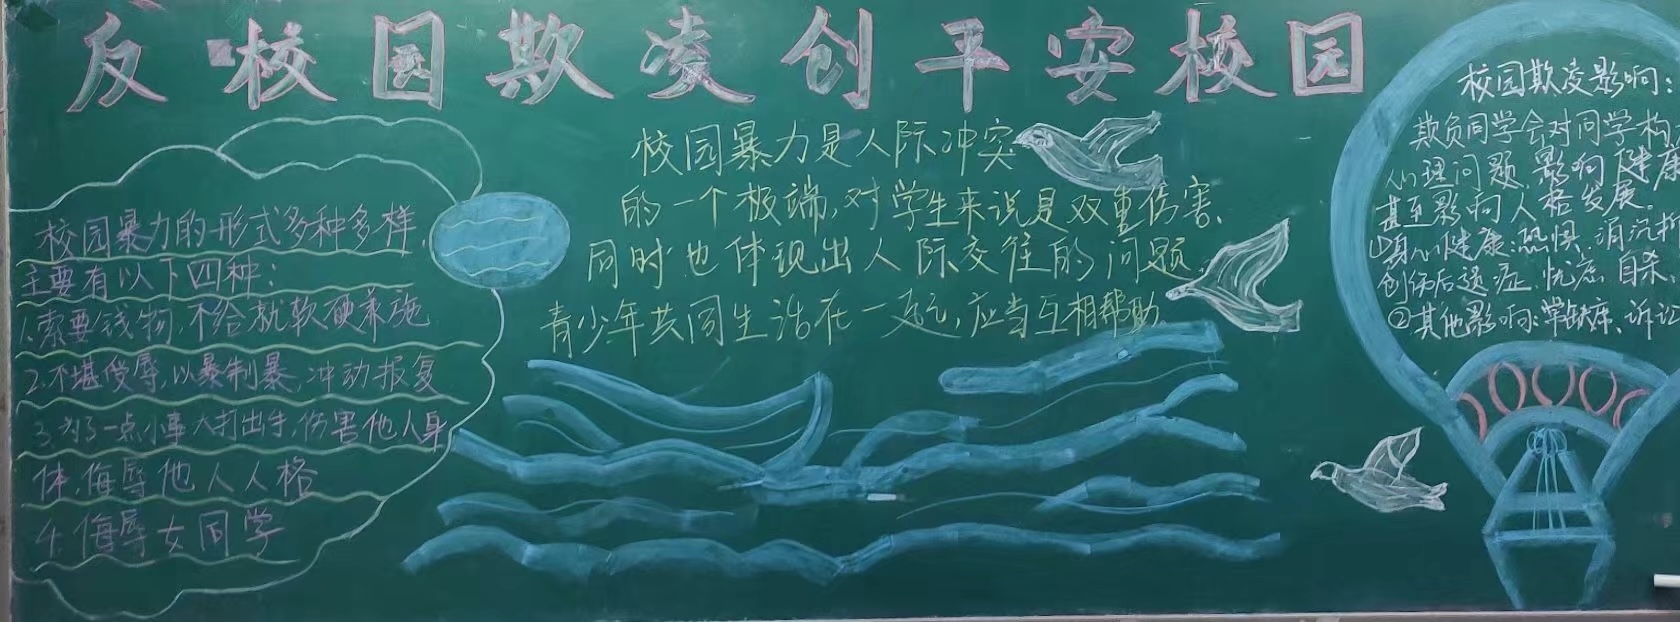 反校园欺凌创平安校园
校园暴力的形式多种多样,
主要有以下四种:
1.索要钱物,不给就软硬兼施
2.不堪受辱,以暴制暴,冲动报复
3.为了一点小事大打出手,伤害他人身
体,侮辱他人人格
4.侮辱女同学
校园暴力是人际冲突
的一个极端,对学生来说是双重伤害、
同时也体现出人际交往的问题
青少年共同生活在一起,应当互相帮助
校园欺凌影响:
欺负同学会对同学构
心理问题,影响健康
甚至影响人格发展.
①身心健康:恐惧.消沉
创伤后遗症.忧虑.自杀
②其他影响:学缺席、诉讼